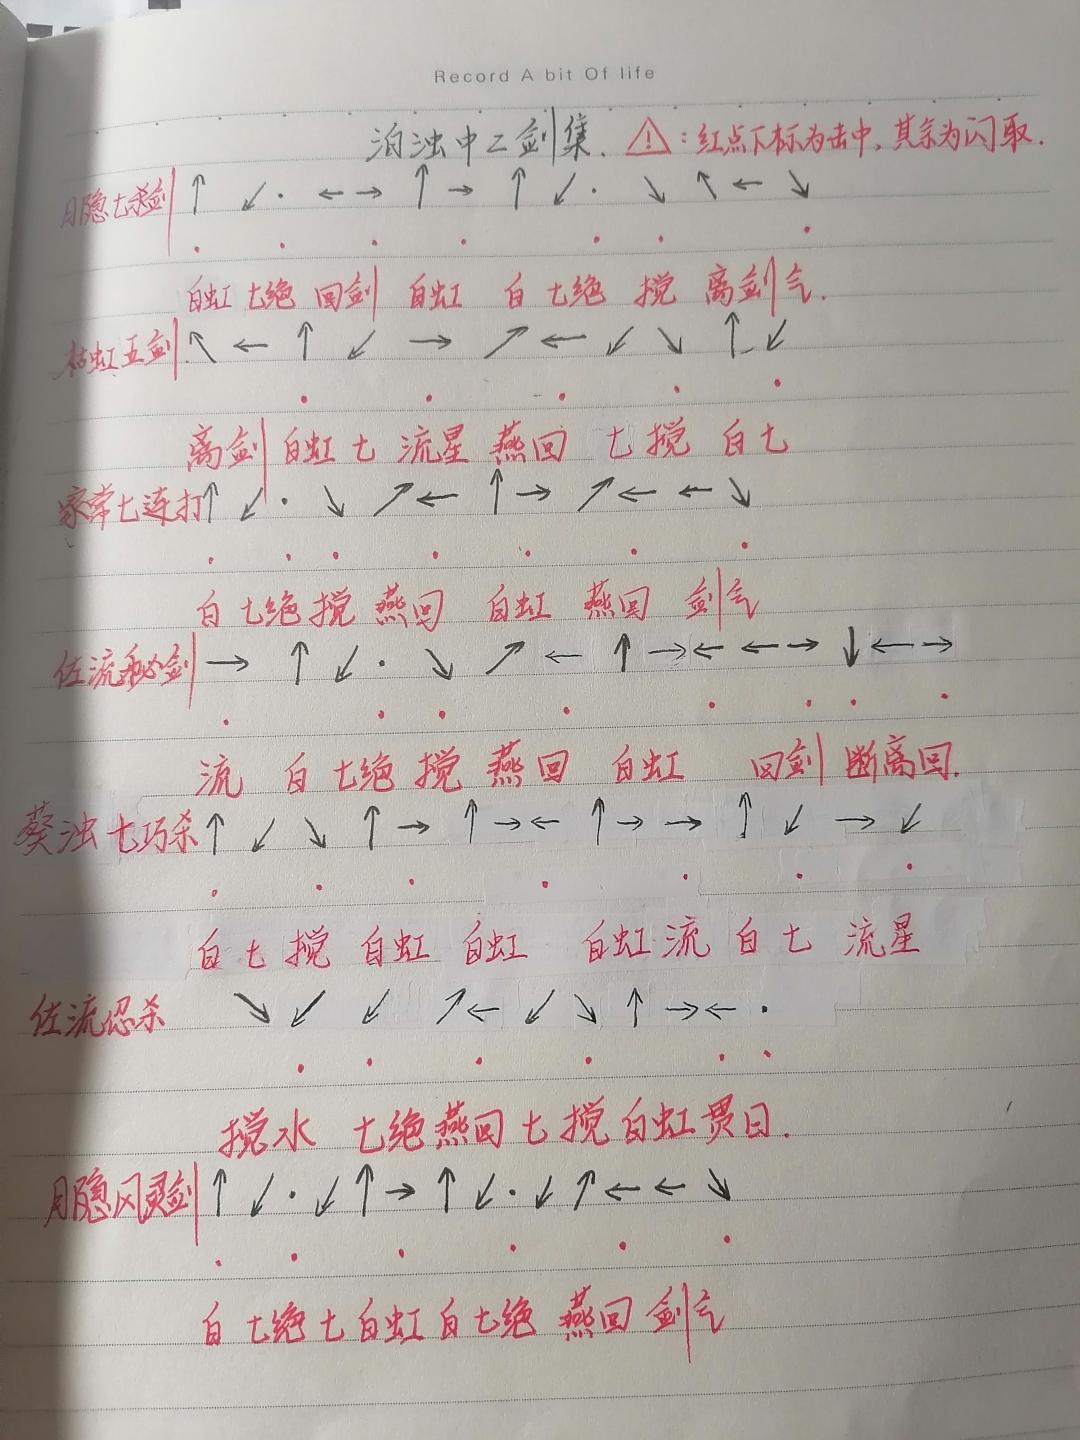 Record A bit Of life
泊浊中二剑集. ⚠:红点下标为击中,其余为闪取.
月隐七杀剑 ↑ ↙ · ← → ↑ → ↑ ↙ · ↘ ↖ ← ↘
白虹 七绝 回剑 白虹 白 七绝 搅 离剑气.
枯虹五剑 ↖ ← ↑ ↙ → ↗ ← ↙ ↘ ↑ ↙
离剑 白虹 七 流星 燕回 七 搅 白七
家常七连打 ↑ ↙ · ↘ ↗ ← ↑ → ↗ ← ← ↘
白 七绝 搅 燕回 白虹 燕回 剑气
佐流秘剑 → ↑ ↙ · ↘ ↗ ← ↑ → ← ← → ↓ ← →
流 白 七绝 搅 燕回 白虹 回剑 断离回.
葵浊七巧杀 ↑ ↙ ↘ ↑ → ↑ → ← ↑ → → ↑ ↙ → ↙
白 七 搅 白虹 白虹 白虹 流 白 七 流星
佐流忍杀 ↘ ↙ ↙ ↗ ← ↙ ↘ ↑ → ← ·
搅水 七绝 燕回 七 搅 白虹贯日.
月隐风灵剑 ↑ ↙ · ↙ ↑ → ↑ ↙ · ↙ ↗ ← ← ↘
白 七绝 七 白虹 白 七绝 燕回 剑气